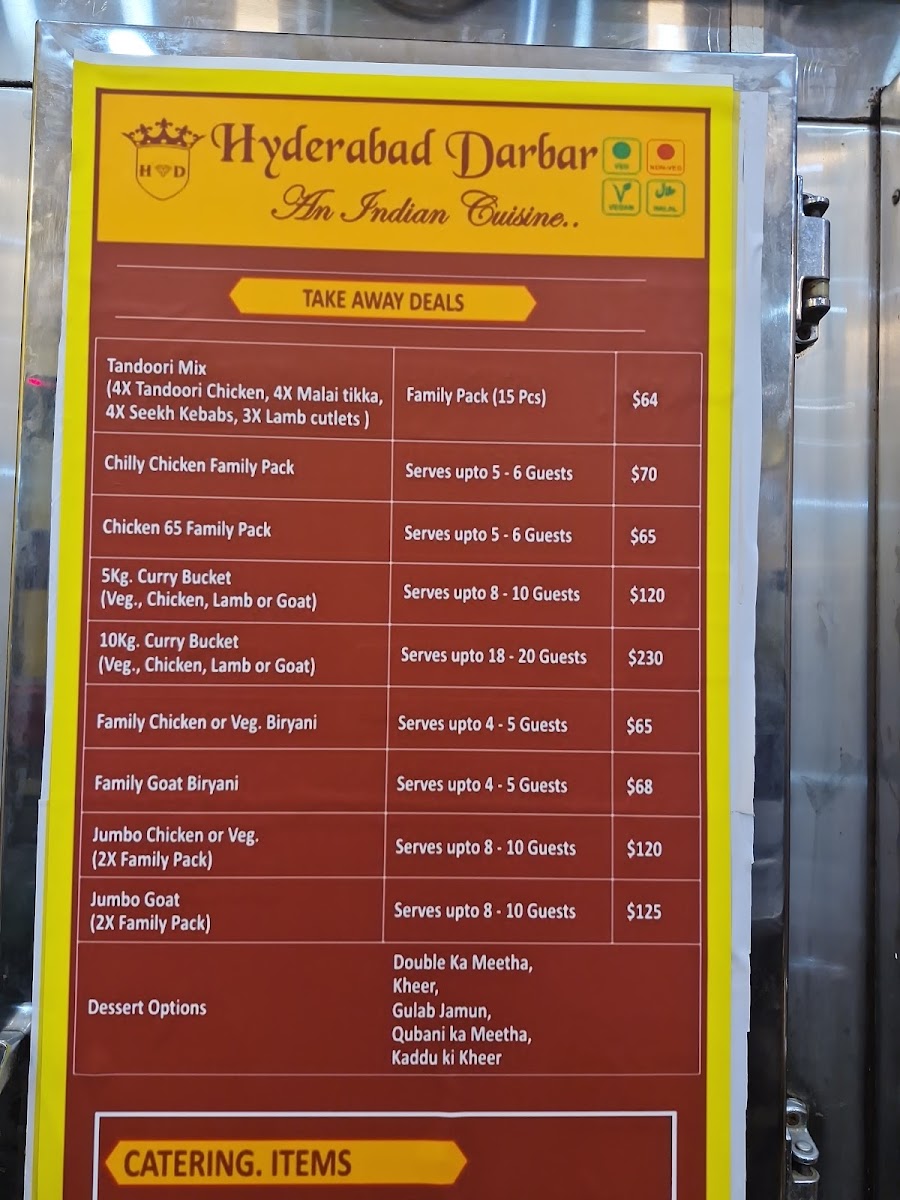 H D
Hyderabad Darbar
VEG
NON-VEG
An Indian Cuisine..
VEGAN
HALAL
TAKE AWAY DEALS
Tandoori Mix
(4X Tandoori Chicken, 4X Malai tikka,
4X Seekh Kebabs, 3X Lamb cutlets )
Family Pack (15 Pcs)
$64
Chilly Chicken Family Pack
Serves upto 5 - 6 Guests
$70
Chicken 65 Family Pack
Serves upto 5 - 6 Guests
$65
5Kg. Curry Bucket
(Veg., Chicken, Lamb or Goat)
Serves upto 8 - 10 Guests
$120
10Kg. Curry Bucket
(Veg., Chicken, Lamb or Goat)
Serves upto 18 - 20 Guests
$230
Family Chicken or Veg. Biryani
Serves upto 4 - 5 Guests
$65
Family Goat Biryani
Serves upto 4 - 5 Guests
$68
Jumbo Chicken or Veg.
(2X Family Pack)
Serves upto 8 - 10 Guests
$120
Jumbo Goat
(2X Family Pack)
Serves upto 8 - 10 Guests
$125
Dessert Options
Double Ka Meetha,
Kheer,
Gulab Jamun,
Qubani ka Meetha,
Kaddu ki Kheer
CATERING. ITEMS